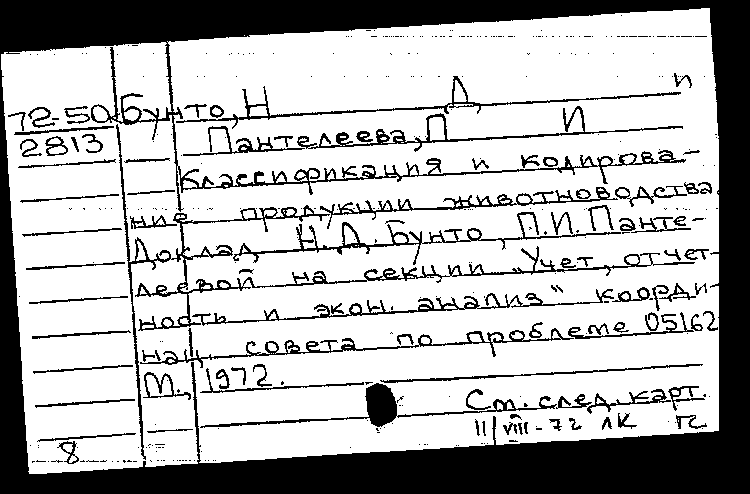 72-50 Бунто, Н Д и
2813 Пантелеева, П И
Классификация и кодирова-
ние продукции животноводства.
Доклад Н.Д. Бунто, П.И. Панте-
леевой на секции „Учет, отчет-
ность и экон. анализ" коорди-
нац. совета по проблеме 05162
М., 1972.
См. след. карт.
11/VIII-72 ЛК
8